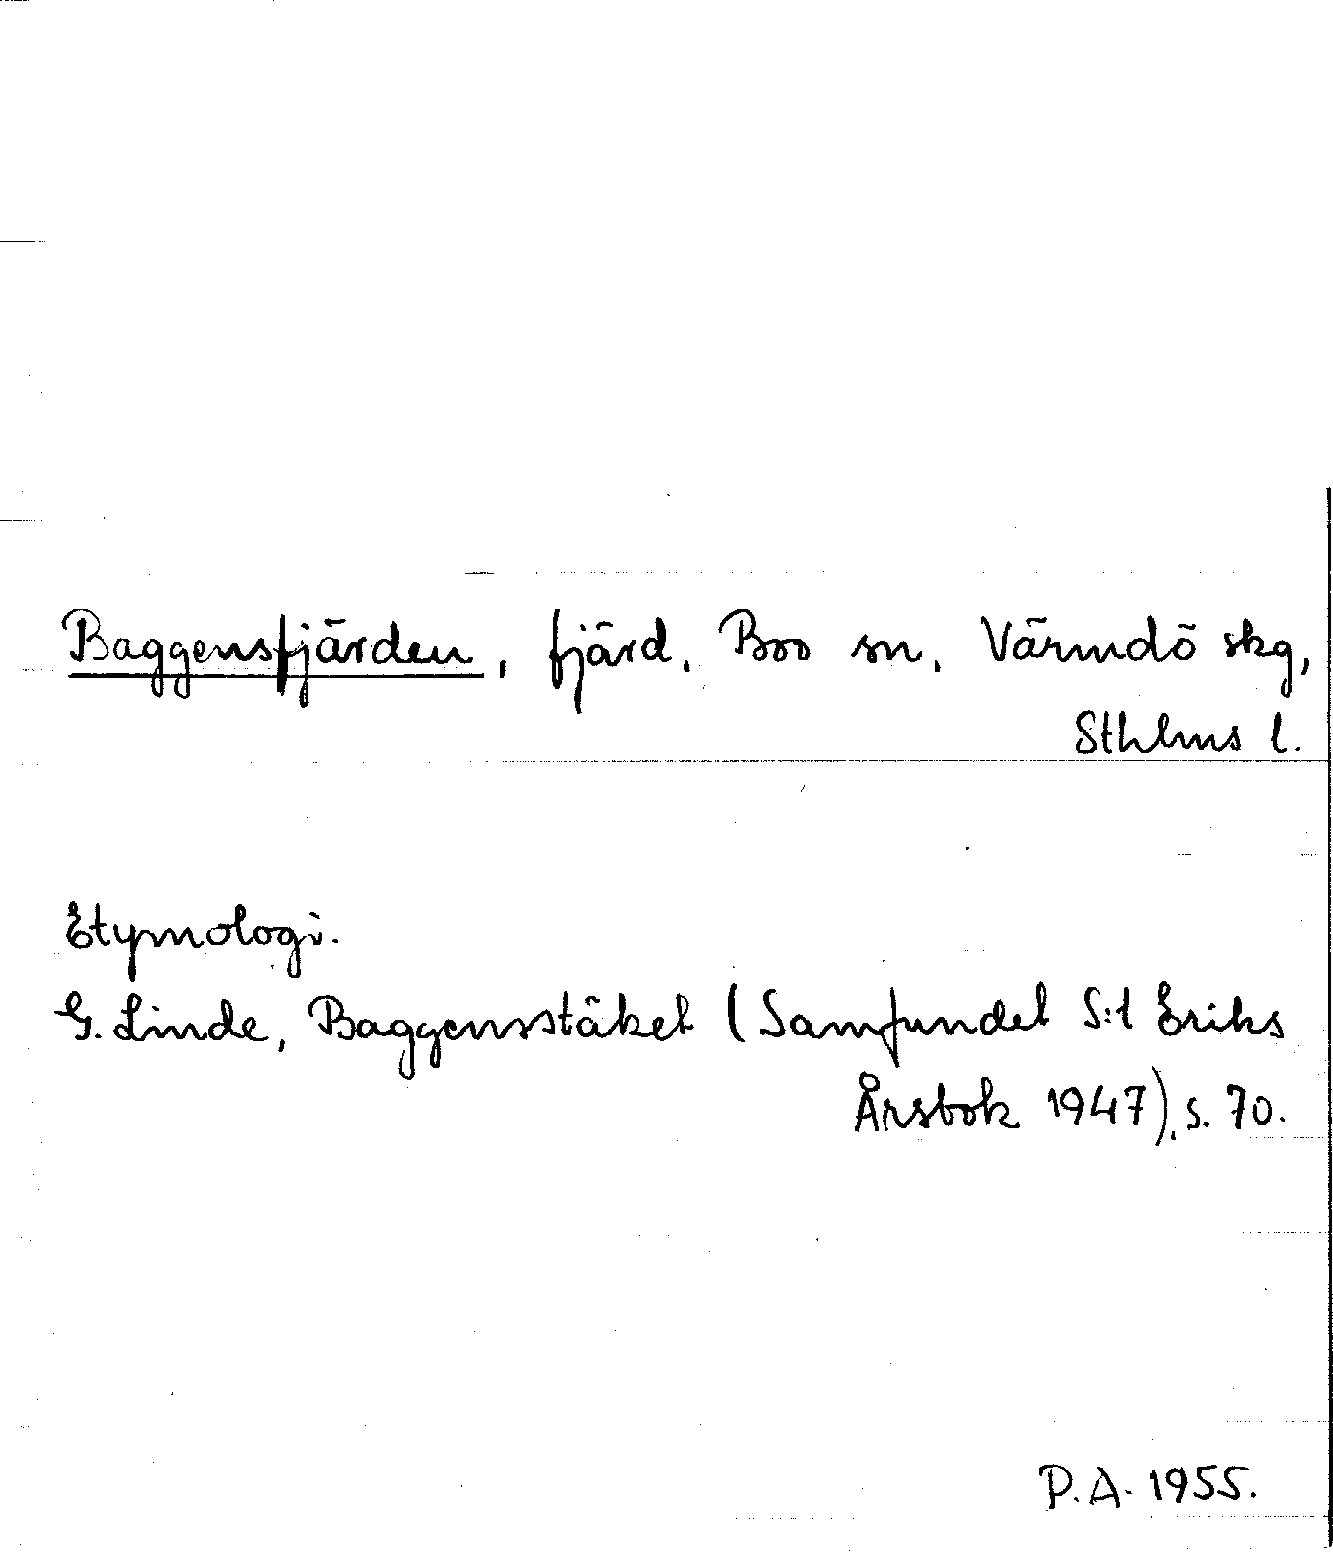 Baggensfjärden, fjärd, Boo sn, Värmdö skg,
Sthlms l.
Etymologi.
G. Linde, Baggensstäket (Samfundet S:t Eriks
Årsbok 1947), s. 70.
P.A. 1955.